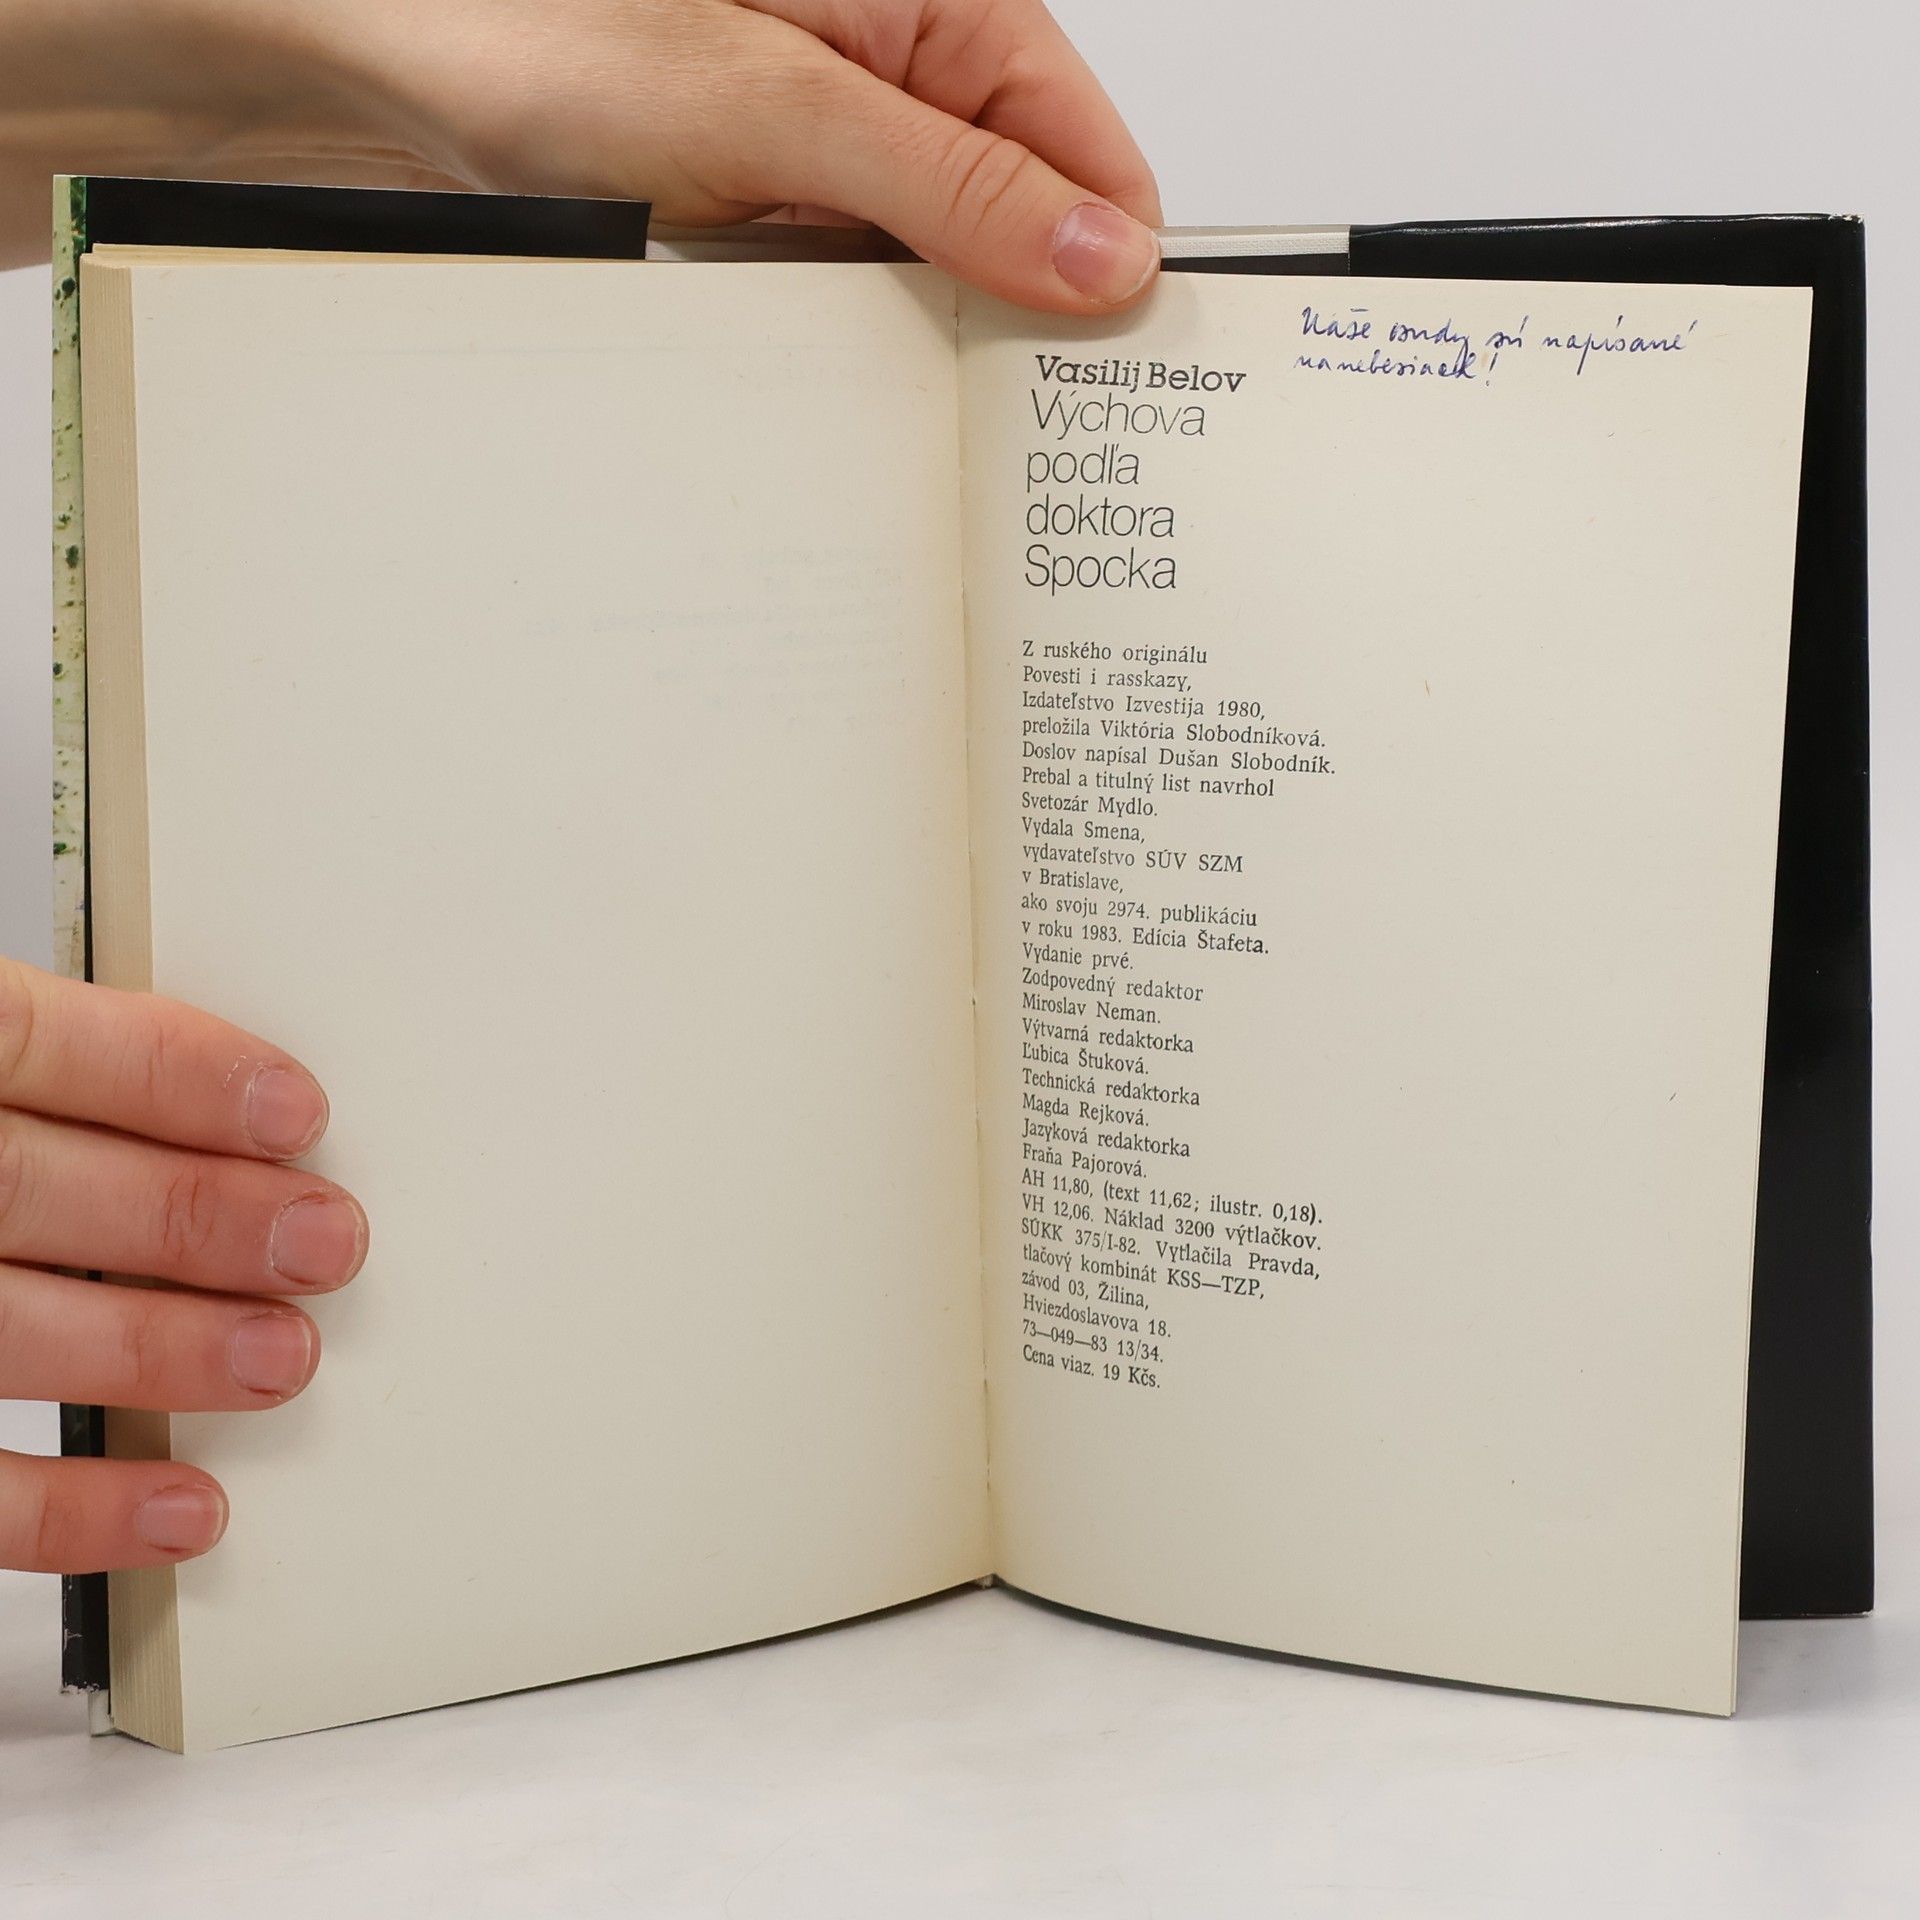 Naše osudy sú napísané
na nebesiach!
Vasilij Belov
Výchova
podľa
doktora
Spocka
Z ruského originálu
Povesti i rasskazy,
Izdateľstvo Izvestija 1980,
preložila Viktória Slobodníková.
Doslov napísal Dušan Slobodník.
Prebal a titulný list navrhol
Svetozár Mydlo.
Vydala Smena,
vydavateľstvo SÚV SZM
v Bratislave,
ako svoju 2974. publikáciu
v roku 1983. Edícia Štafeta.
Vydanie prvé.
Zodpovedný redaktor
Miroslav Neman.
Výtvarná redaktorka
Ľubica Štuková.
Technická redaktorka
Magda Rejková.
Jazyková redaktorka
Fraňa Pajorová.
AH 11,80, (text 11,62; ilustr. 0,18).
VH 12,06. Náklad 3200 výtlačkov.
SÚKK 375/I-82. Vytlačila Pravda,
tlačový kombinát KSS—TZP,
závod 03, Žilina,
Hviezdoslavova 18.
73—049—83 13/34.
Cena viaz. 19 Kčs.